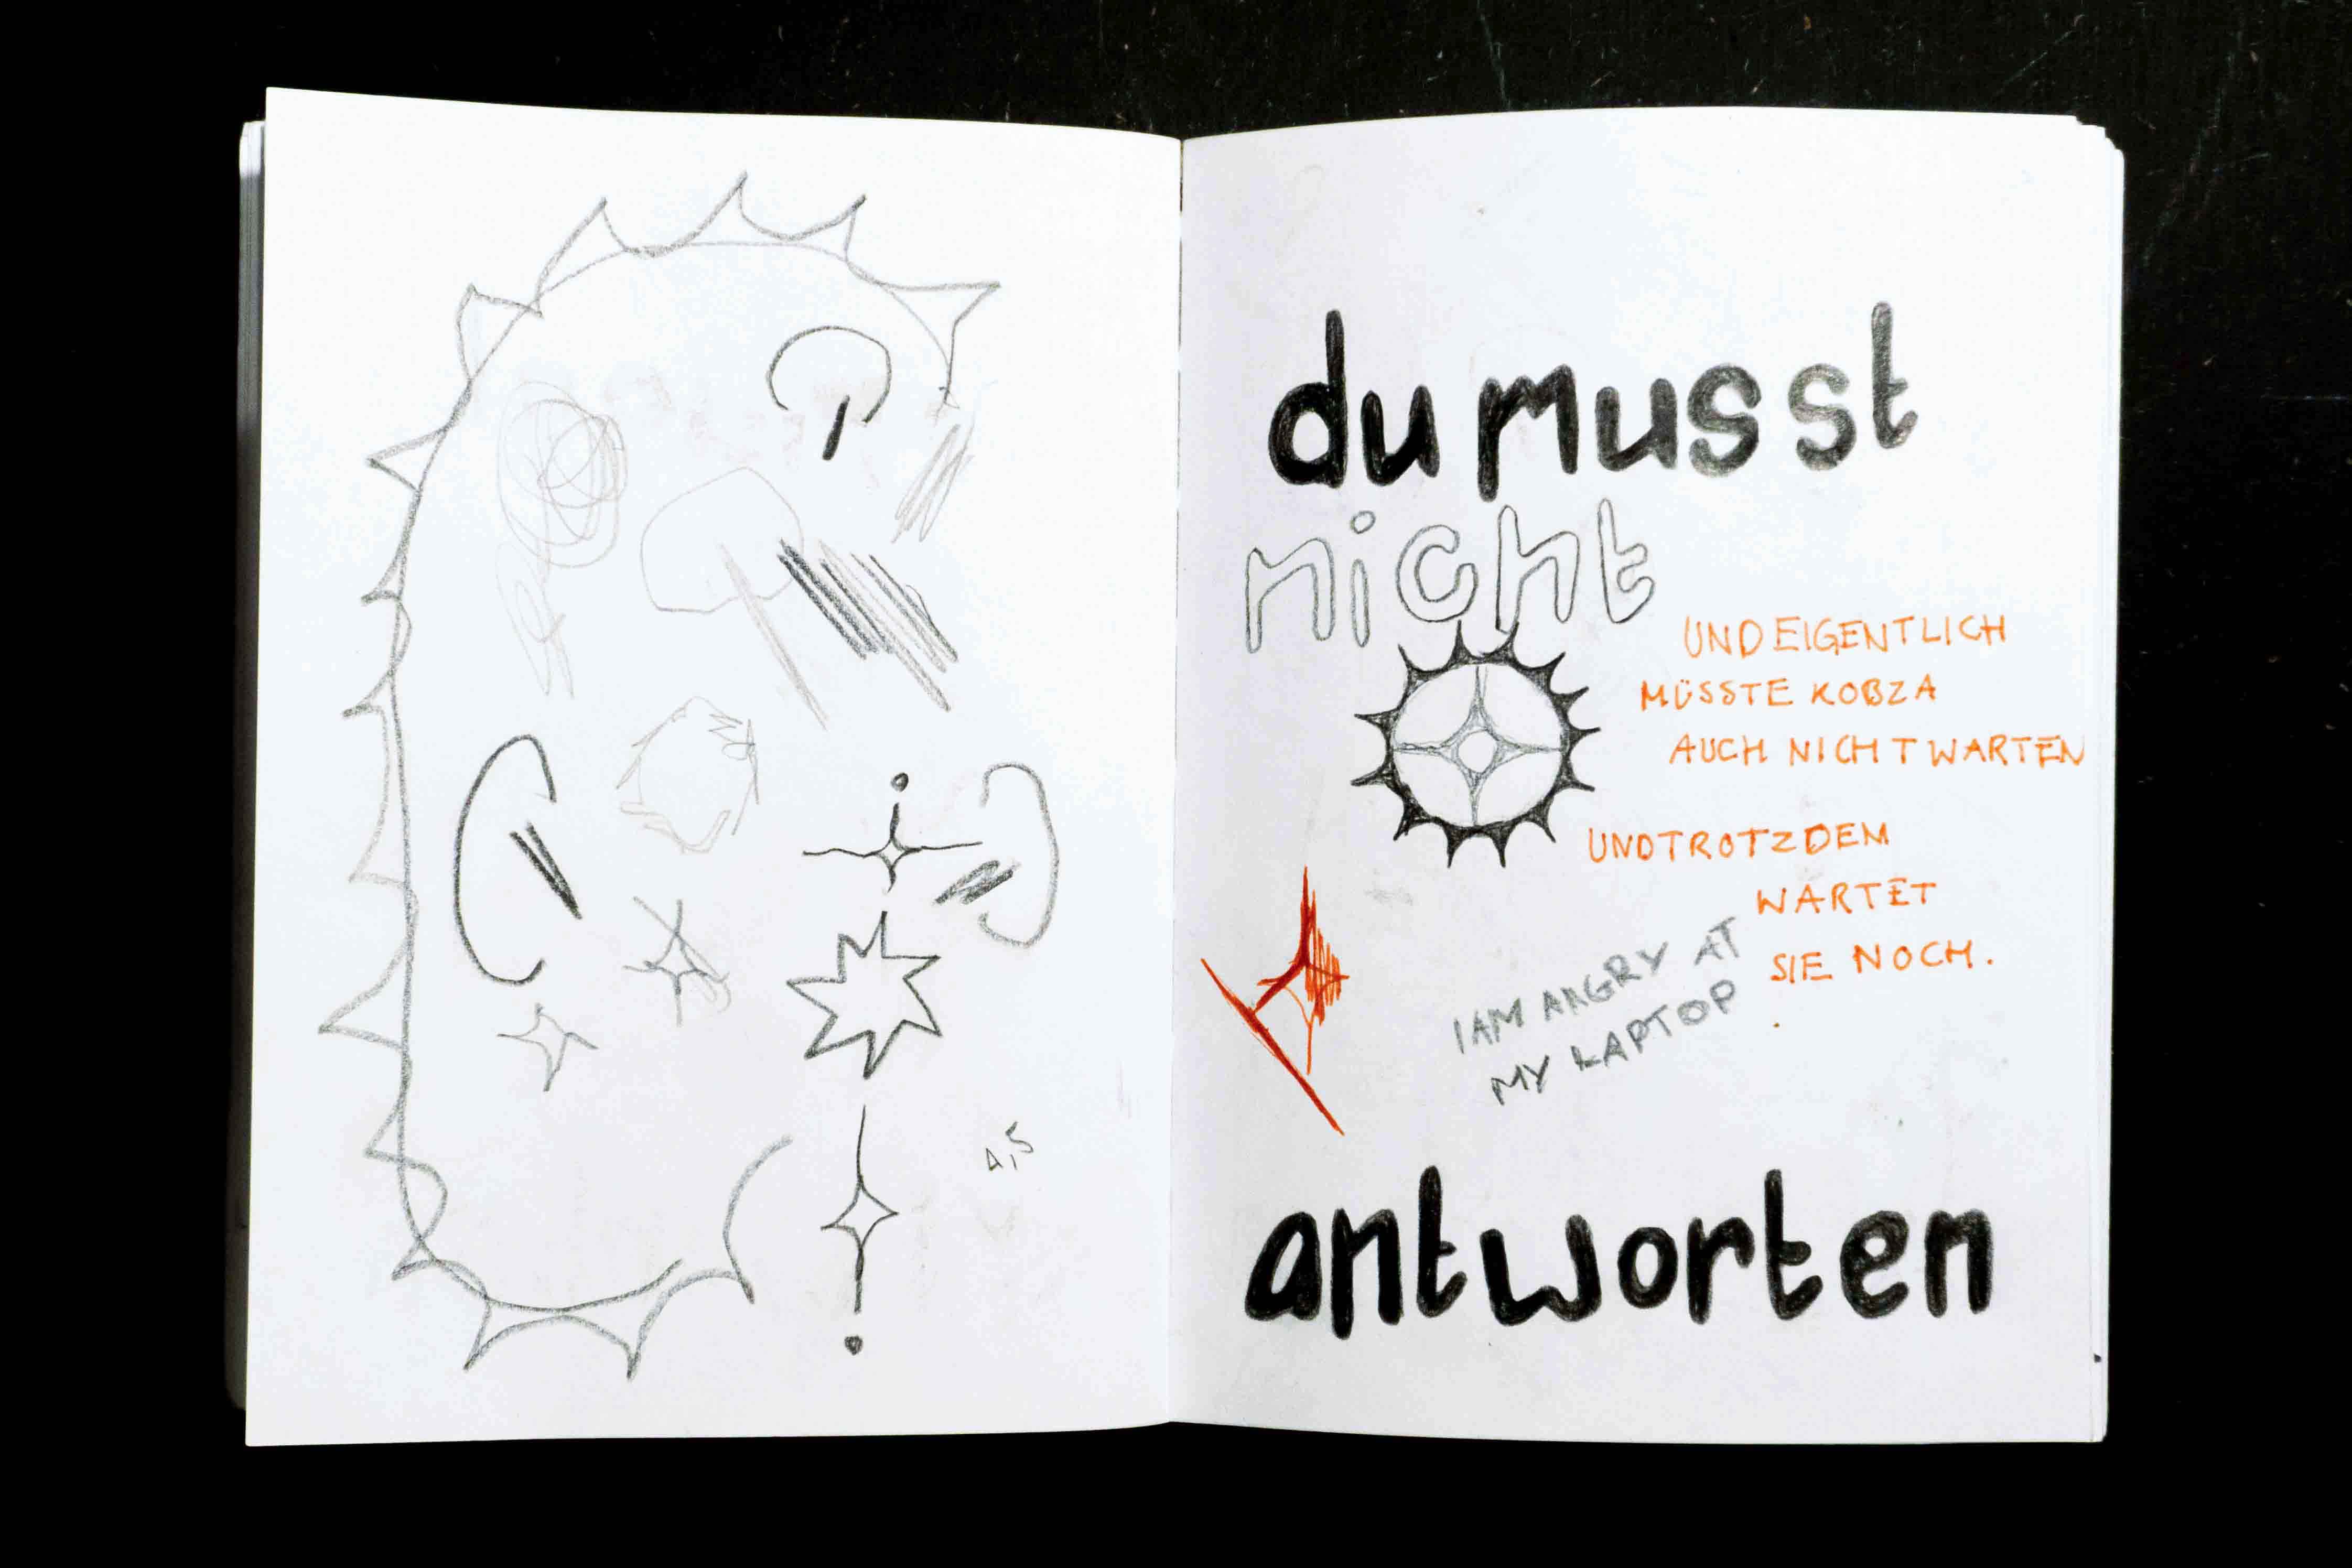 du musst
nicht
UND EIGENTLICH
MÜSSTE KOBZA
AUCH NICHT WARTEN
UND TROTZDEM
WARTET
SIE NOCH.
I AM ANGRY AT
MY LAPTOP
antworten